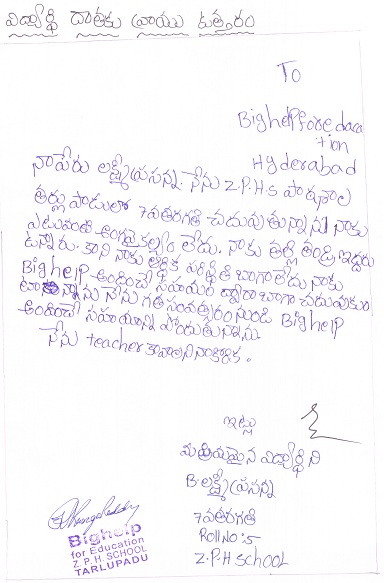 విద్యార్థి దాతకు వ్రాయు ఉత్తరం
To
Bighelp for educa
tion
Hyderabad
నాపేరు లక్ష్మీప్రసన్న. నేను Z.P.H.S పాఠశాల
తర్లుపాడులో 7వతరగతి చదువుతున్నాను నాకు
ఎటువంటి అంగవైకల్యం లేదు. నాకు తల్లి తండ్రి ఇద్దరు
ఉన్నారు. కాని నాకు ఆర్థిక పరిస్థితి బాగాలేదు నాకు
Bighelp అందించే సహాయం ద్వారా బాగా చదువుకుం
టున్నాను నేను గత సంవత్సరం నుండి Bighelp
అందించే సహాయాన్ని పొందుతున్నాను.
నేను teacher కావాలని నాకోరిక.
ఇట్లు
మీ ప్రియమైన విద్యార్థిని
B.లక్ష్మీప్రసన్న
7వతరగతి
Roll No:5
Z.P.H School
Bighelp
for Education
Z. P. H. SCHOOL
TARLUPADU